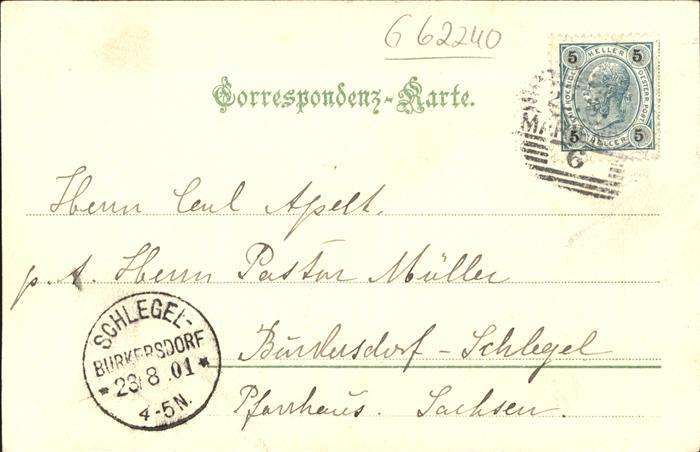 G 62240
5 HELLER 5
5 HELLER 5
Correspondenz-Karte.
MAR
6
Herrn Carl Apelt.
p. A. Herrn Pastor Müller
Burkersdorf - Schlegel
Pfarrhaus. Sachsen.
SCHLEGEL-
BURKERSDORF
* 23/8.01 *
4-5N.